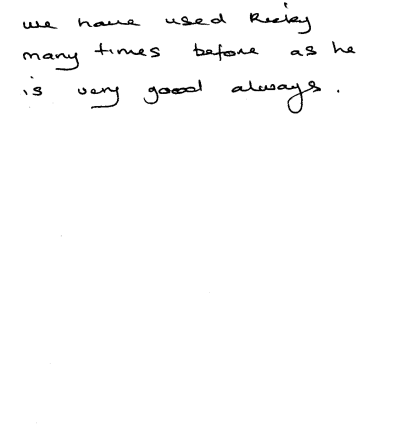 we have used Ricky
many times before as he
is very good always.